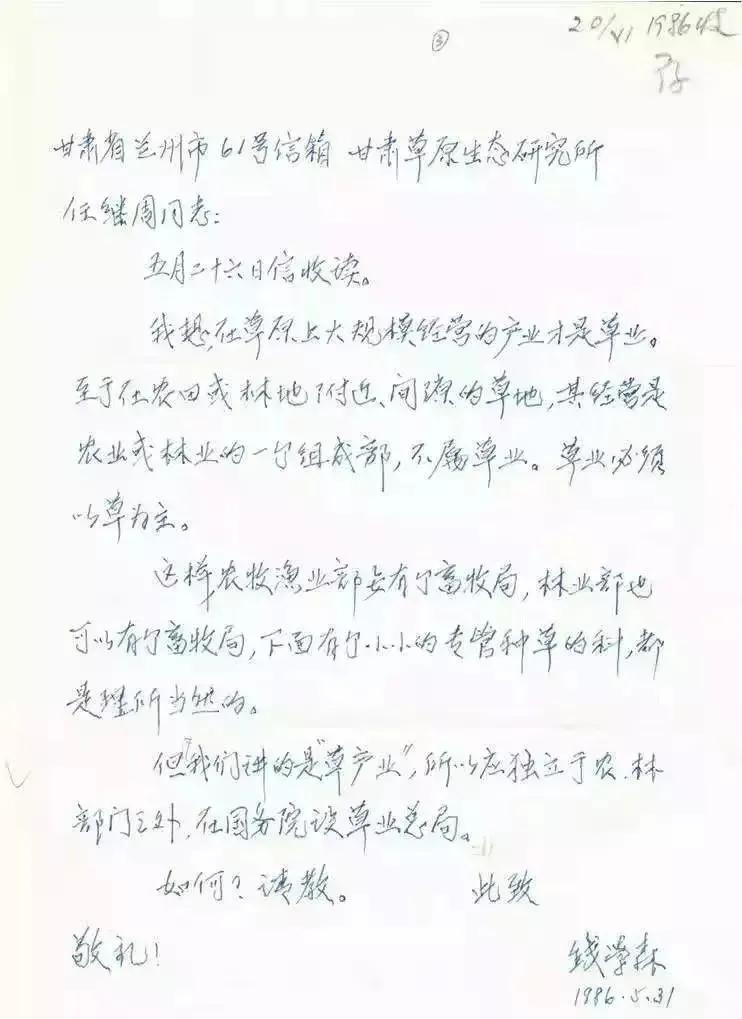 20/VI 1986收
存
③
甘肃省兰州市61号信箱 甘肃草原生态研究所
任继周同志:
五月二十六日信收读。
我想,在草原上大规模经营的产业才是草业。
至于在农田或林地附近、间隙的草地,其经营是
农业或林业的一个组成部,不属草业。草业必须
以草为主。
这样农牧渔业部会有个畜牧局,林业部也
可以有个畜牧局,下面有个小小的专管种草的科,都
是理所当然的。
但我们讲的是“草产业”,所以应独立于农、林
部门之外,在国务院设草业总局。
如何?请教。 此致
敬礼!
钱学森
1986.5.31